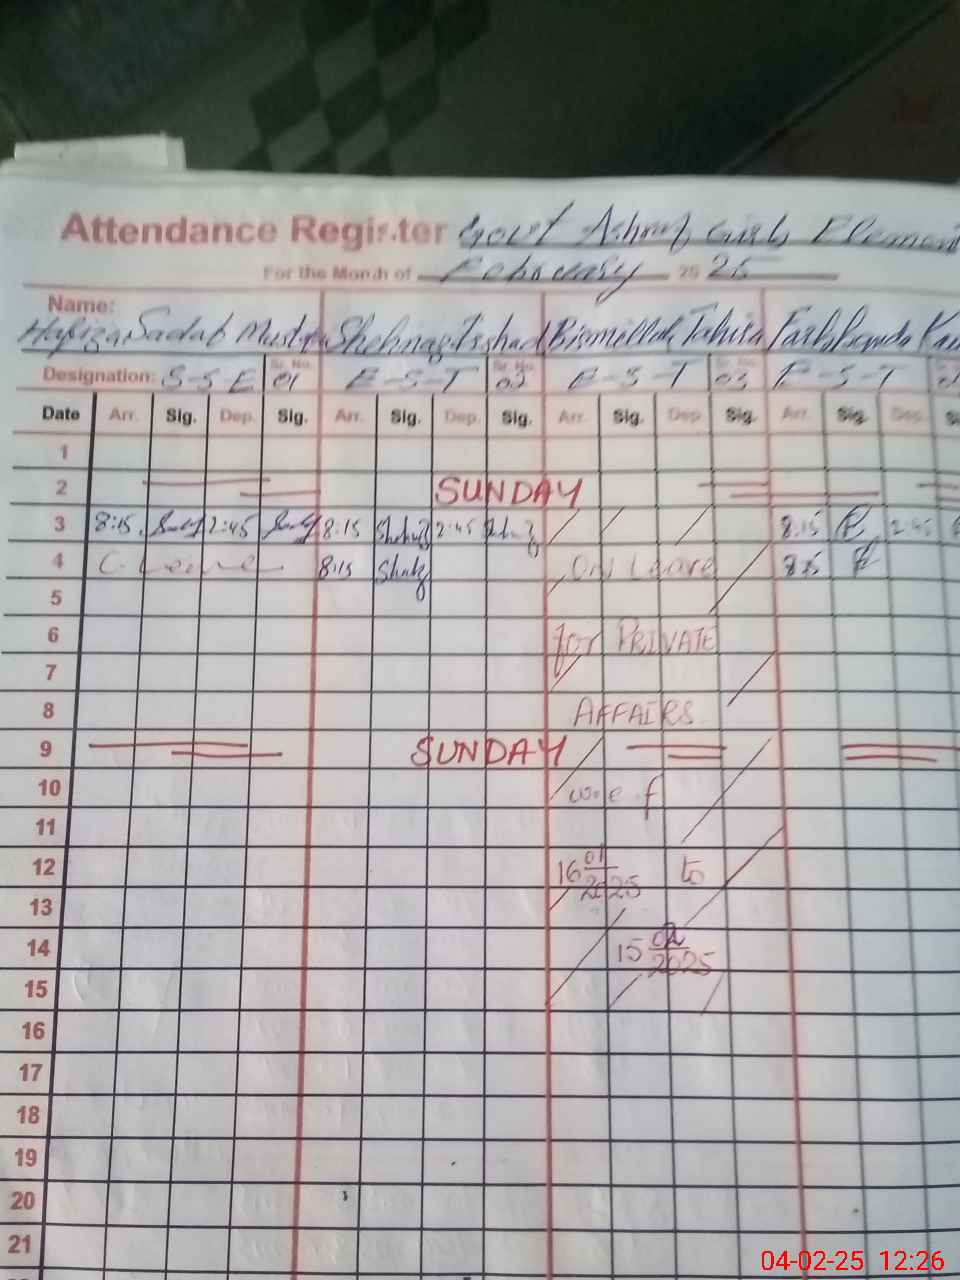 Attendance Register Govt Ashraf Girls Element
For the Month of February 20 25
Name:
Hafiza Sadaf Mustafa Shehnaz Irshad Bismillah Tahira Farkhanda
Designation: S-S-E Sr. No. 01 E-S-T Sr. No. 02 E-S-T Sr. No. 03 E-S-T
Date Arr. Sig. Dep. Sig. Arr. Sig. Dep. Sig. Arr. Sig. Dep. Sig. Arr. Sig. Dep.
1
2 SUNDAY
3 8:15 2:45 8:15 2:45 8:15 2:45
4 C. Leave 8:15 On Leave 8:15
5
6 for PRIVATE
7
8 AFFAIRS
9 SUNDAY
10 w.e.f
11
12 16 01/2025 to
13
14 15 02/2025
15
16
17
18
19
20
21
04-02-25 12:26